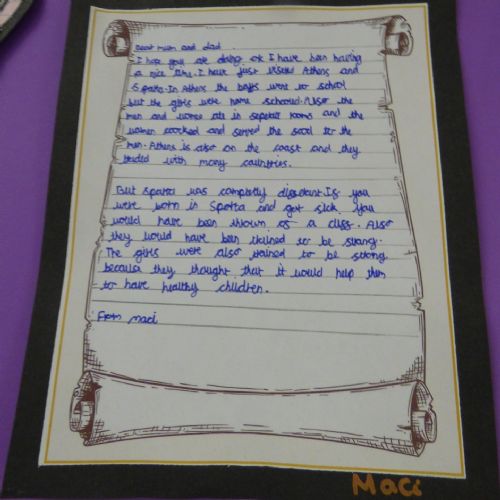 Dear mum and dad
I hope you are doing ok I have been having
a nice time. I have just visited Athens and
Sparta. In Athens the boys went to school
but the girls were home schooled. Also the
men and women ate in seperate rooms and the
women coocked and served the food to the
men. Athens is also on the coast and they
traded with many countries.
But Sparta was completly diffarent If you
were born in Sparta and got sick you
would have been thrown of a cliff. Also
they would have been trained to be strong.
The girls were also trained to be strong
because they thought that it would help them
to have healthy children.
From maci
Maci